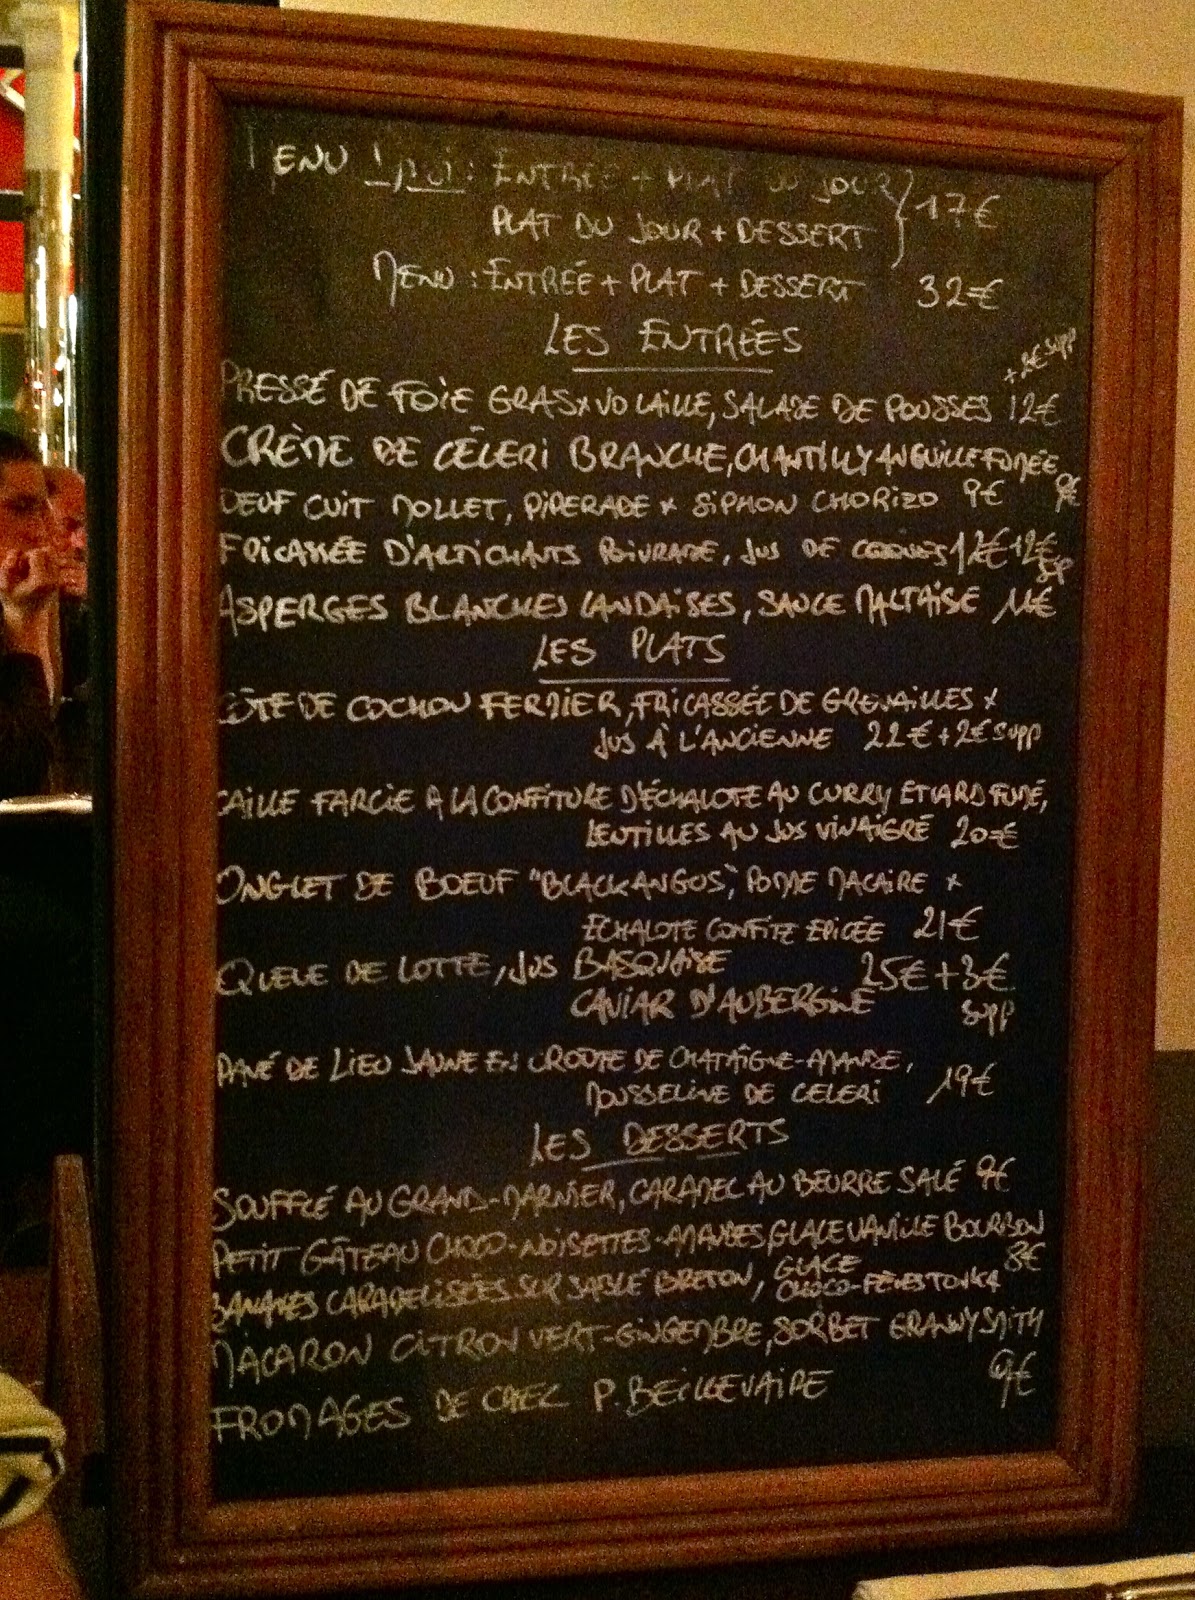 MENU Midi : ENTRÉE + PLAT DU JOUR } 17€
PLAT DU JOUR + DESSERT
MENU : ENTRÉE + PLAT + DESSERT 32€
LES ENTRÉES
+2€ SUPP
PRESSÉ DE FOIE GRAS x VOLAILLE, SALADE DE POUSSES 12€
CRÈME DE CÉLERI BRANCHE, CHANTILLY ANGUILLE FUMÉE
9€
OEUF CUIT MOLLET, PIPERADE x SIPHON CHORIZO 9€
FRICASSÉE D'ARTICHAUTS POIVRADE, JUS DE COQUES 12€ +2€
SP
ASPERGES BLANCHES LANDAISES, SAUCE MALTAISE 11€
LES PLATS
CÔTE DE COCHON FERMIER, FRICASSÉE DE GRENAILLES x
JUS À L'ANCIENNE 22€ + 2€ SUPP
CAILLE FARCIE A LA CONFITURE D'ÉCHALOTE AU CURRY ET LARD FUMÉ,
LENTILLES AU JUS VINAIGRÉ 20€
ONGLET DE BOEUF "BLACK ANGUS", POMME MACAIRE x
ECHALOTE CONFITE EPICÉE 21€
QUEUE DE LOTTE, JUS BASQUAISE 25€ + 3€
CAVIAR D'AUBERGINE SUPP
PAVÉ DE LIEU JAUNE EN CROÛTE DE CHATAÎGNE-AMANDE,
MOUSSELINE DE CELERI 19€
LES DESSERTS
SOUFFLÉ AU GRAND-MARNIER, CARAMEL AU BEURRE SALÉ 9€
PETIT GÂTEAU CHOCO-NOISETTES-AMANDES, GLACE VANILLE BOURBON
8€
BANANES CARAMELISÉES SUR SABLÉ BRETON, GLACE
CHOCO-FÈVES TONKA
MACARON CITRON VERT-GINGEMBRE, SORBET GRANNY SMITH
9€
FROMAGES DE CHEZ P. BEILLEVAIRE